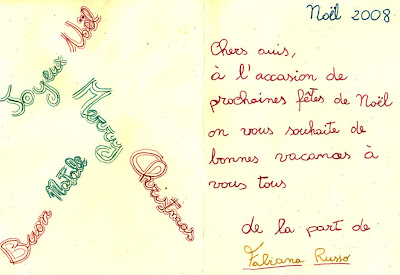 Joyeux Noël
Merry Christmas
Buon Natale
Noël 2008
Chers amis,
à l'accasion de
prochaines fêtes de Noël
on vous souhaite de
bonnes vacances à
vous tous
de la part de
Fabiana Russo